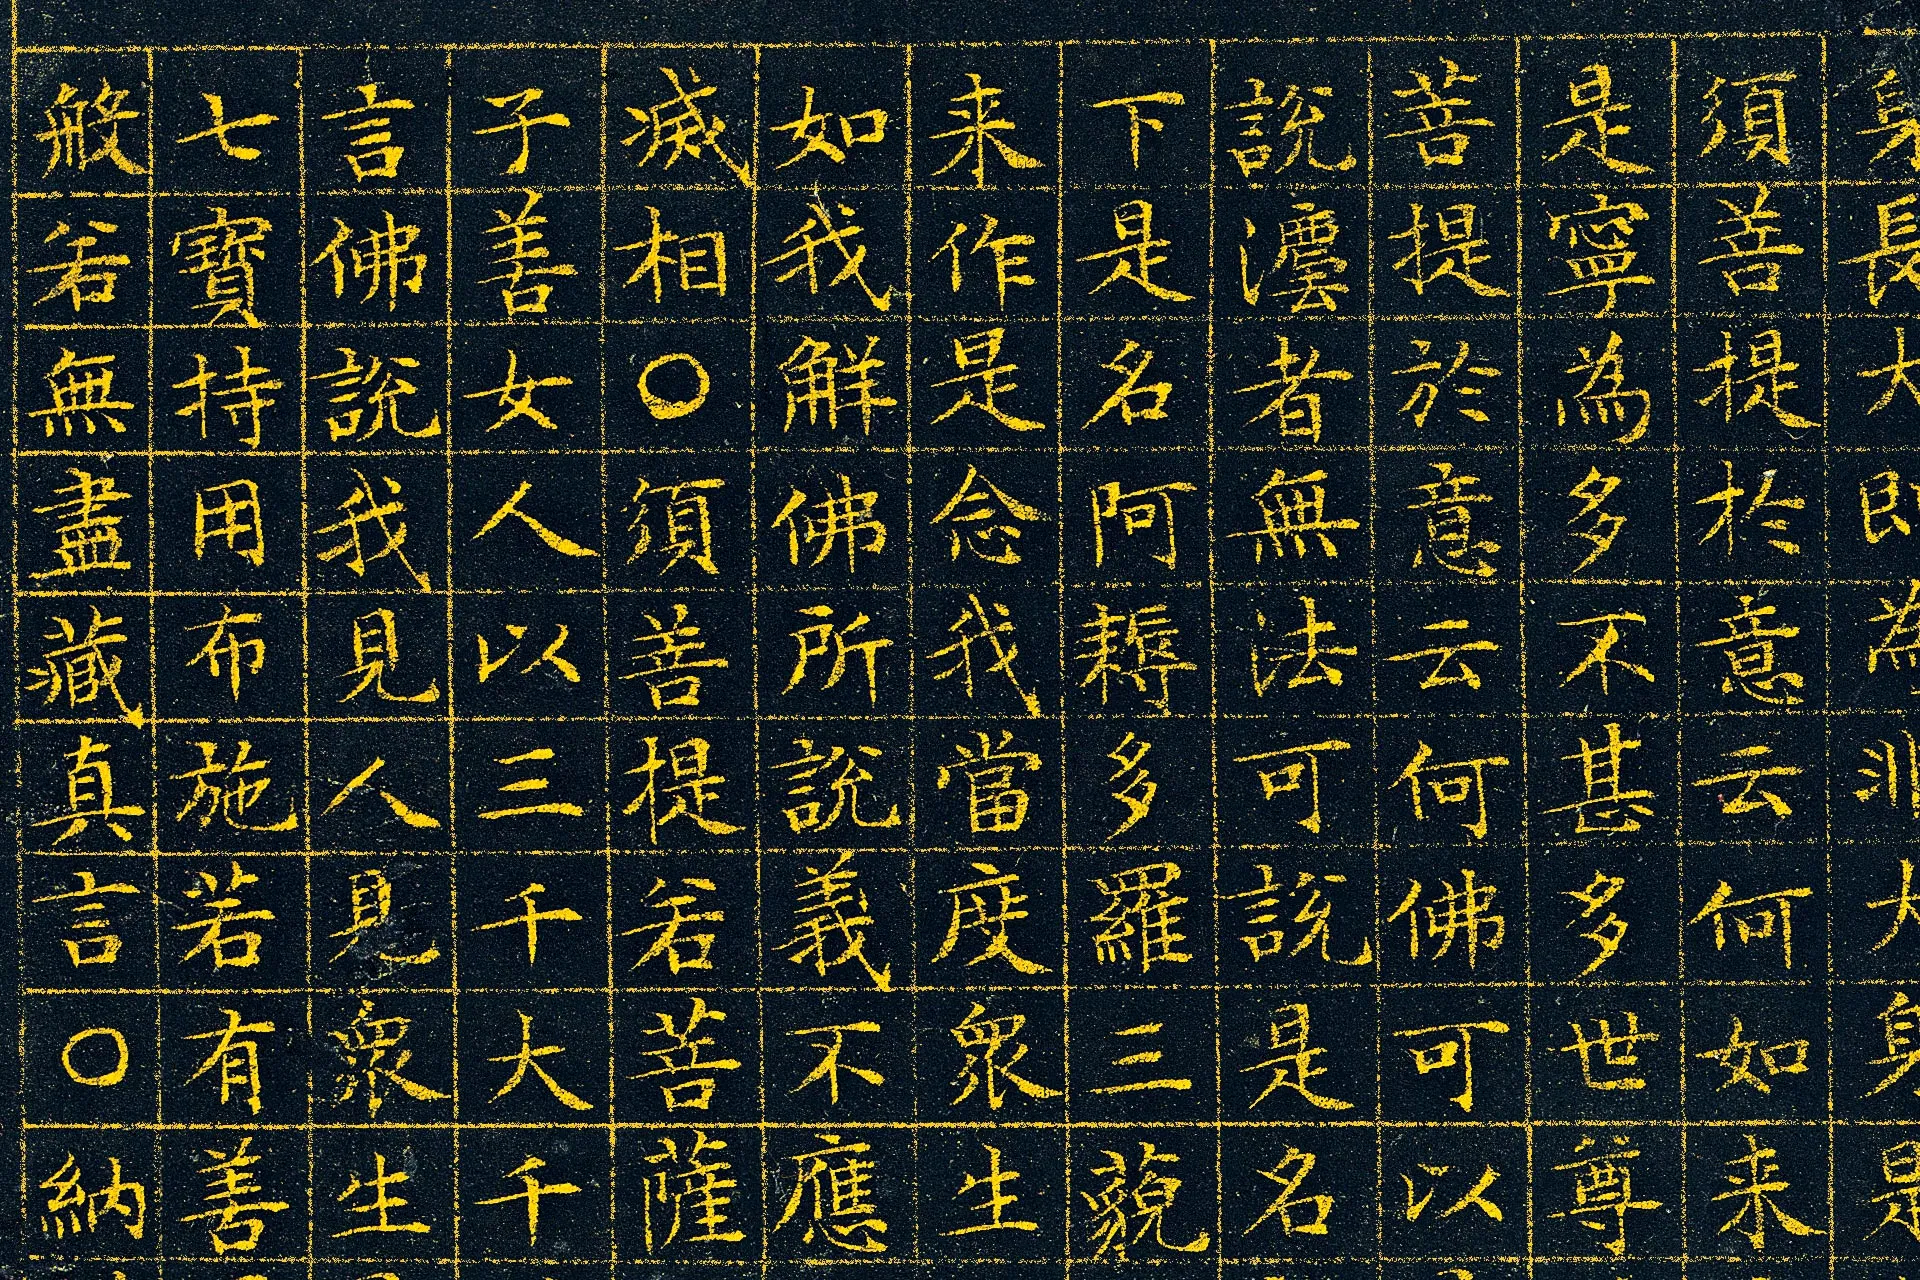 身長大即為非大身是
須菩提於意云何如来
是寧為多不甚多世尊
菩提於意云何佛可以
說法者無法可說是名
下是名阿耨多羅三藐
来作是念我當度衆生
如我解佛所說義不應
滅相〇須菩提若菩薩
子善女人以三千大千
言佛說我見人見衆生
七寶持用布施若有善
般若無盡藏真言〇納